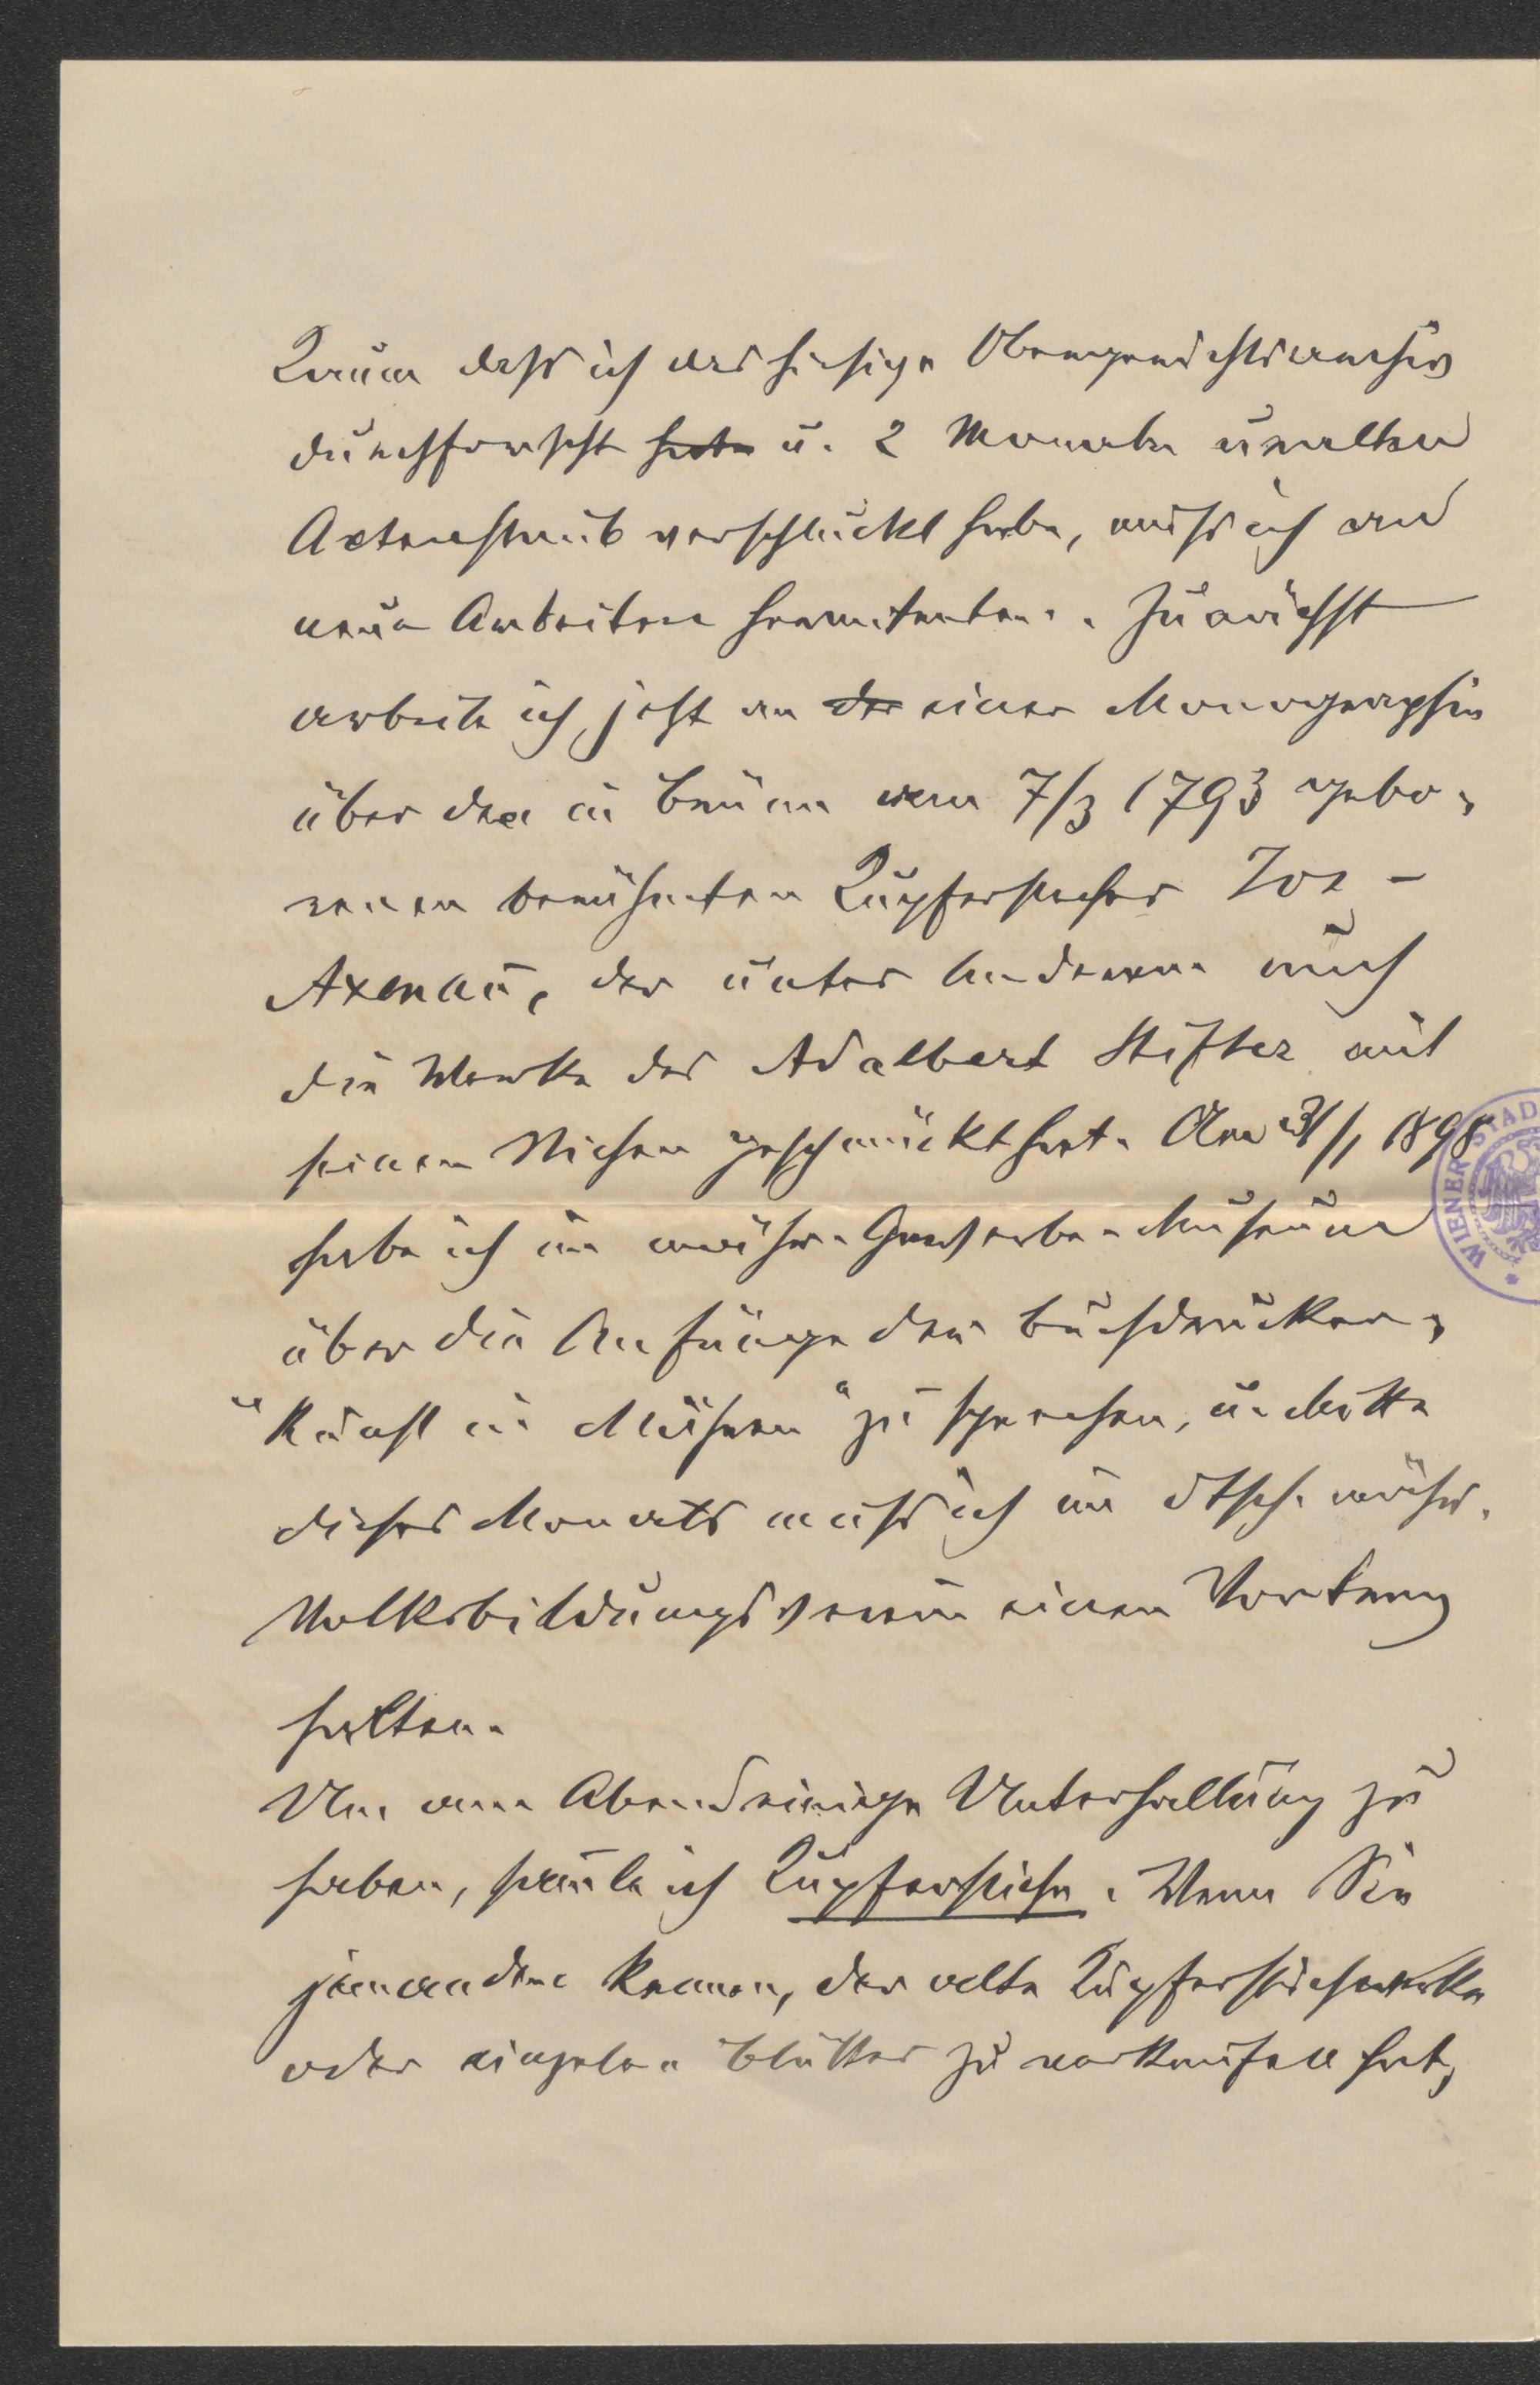 Kaum dass ich das hiesige Obergerichtsarchiv
durchforscht habe u. 2 Monate uralten
Actenstaub verschluckt habe, muss ich an
neue Arbeiten herantreten. Zunächst
arbeite ich jetzt an der einer Monographie
über den in Brünn am 7/3 1793 gebo-
renen berühmten Kupferstecher Jos.
Axmann, der unter Anderem auch
die Werke des Adalbert Stifter mit
seinen Stichen geschmückt hat. Am 31/1 1898
habe ich im mähr. Gewerbe-Museum
über die Anfänge der Buchdrucker-
"Kunst in Mähren" zu sprechen, u. Mitte
dieses Monats muss ich im dtsch. mähr.
Volksbildungsverein einen Vortrag
halten.
Um am Abend einige Unterhaltung zu
haben, sammle ich Kupferstiche. Wenn Sie
jemanden kennen, der alte Kupferstichwerke
oder einzelne Blätter zu verkaufen hat,
WIENER STAD